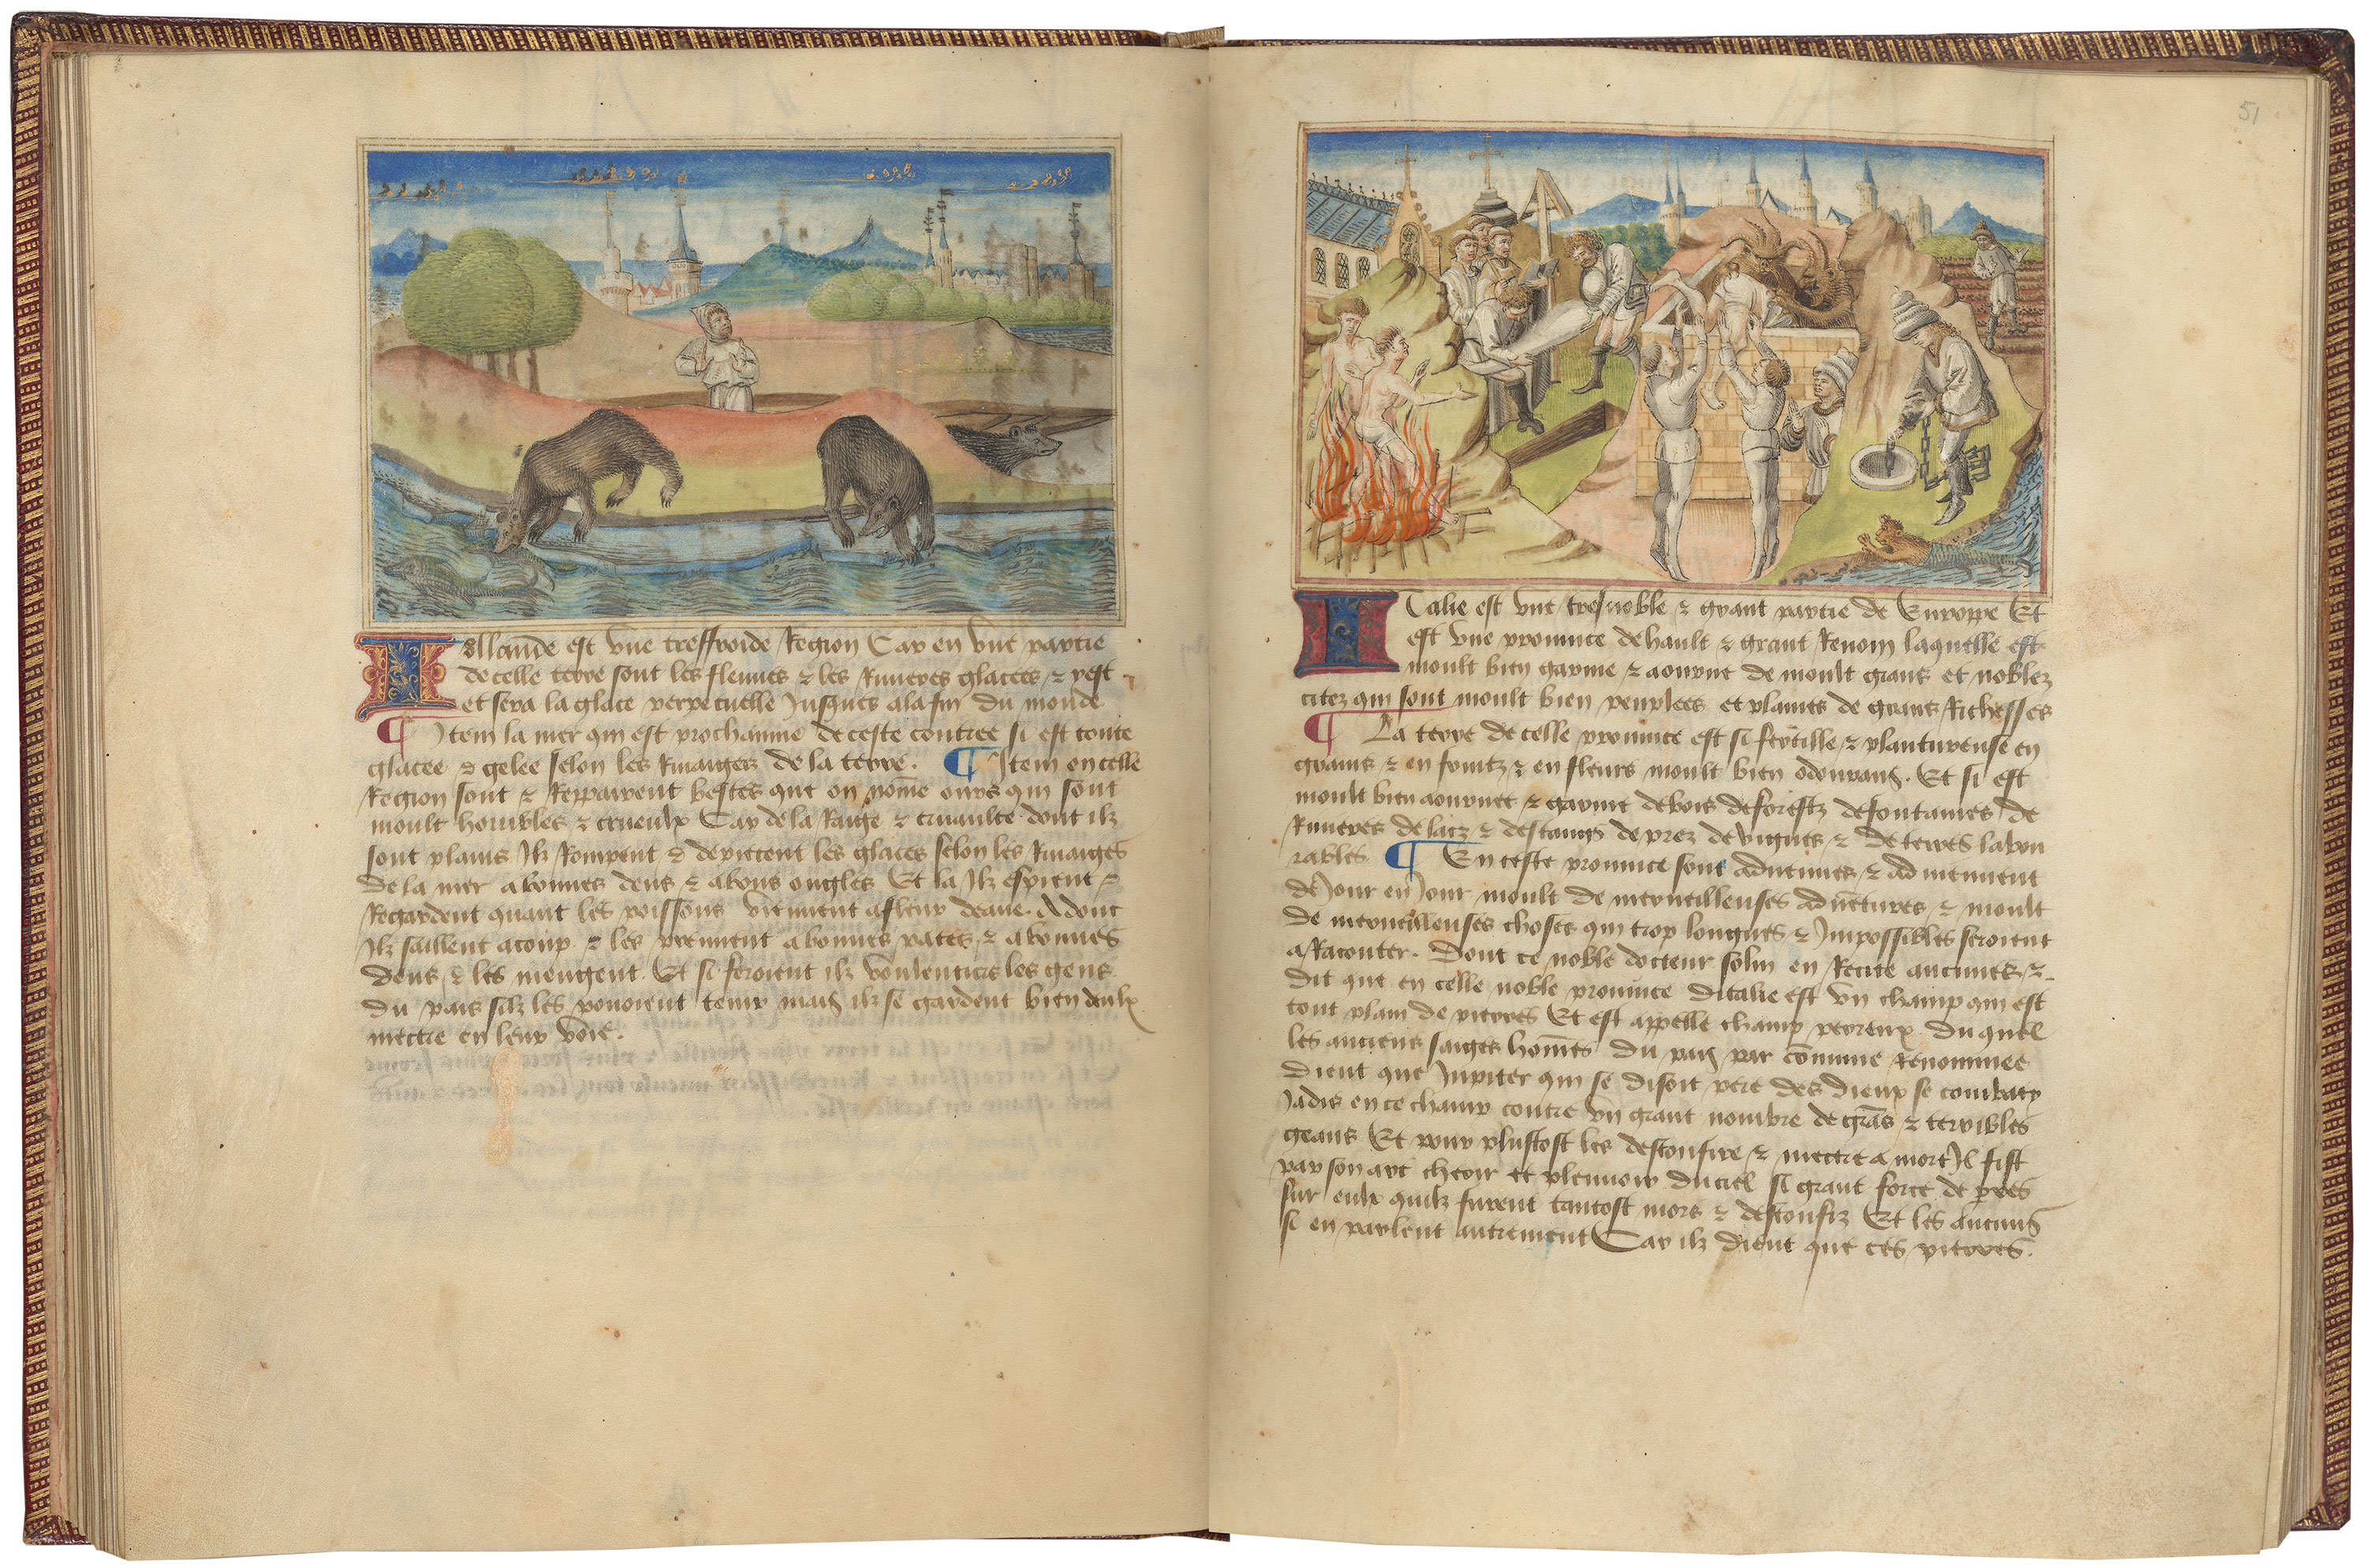 Illande est vne tresfroide Region Car en vne partie
de celle terre sont les fleuues & les Riuieres glacees & y est
et sera la glace perpetuelle Jusques a la fin du monde
¶ Jtem la mer qui est prochainne de ceste contree si est toute
glacee & gelee selon les Riuaiges de la terre. ¶ Jtem en celle
Region sont & Repairent bestes que on nōme ours qui sont
moult horribles & crueulx Car de la Raige & cruaulte dont ilz
sont plains Ilz Rompent & depiecent les glaces selon les Riuaiges
de la mer a bonnes dens & a bons ongles Et la Ilz espient &
Regardent quant les poissons viennent a fleur deaue. Adonc
Ilz saillent acoup & les prennent a bonnes pates & a bonnes
dens & les menguent Et si feroient ilz voulentiers les gens
du pais silz les pouoient tenir mais ilz se gardent bien deulx
mettre en leur voie.
51
Italie est vne tresnoble & grant partie de Europpe Et
est vne prouince de hault & grant Renom laquelle est
moult bien garnie & aournee de moult grans et nobles
citez qui sont moult bien peuplees et plaines de grans Richesses
¶ La terre de celle prouince est si fertille & plantureuse en
grains & en fruitz & en fleurs moult bien odourans. Et si est
moult bien aournee & garnie de bois de forestz de fontaines de
Riuieres de lacz & destangs de prez de vignes & de terres labou
rables ¶ En ceste prouince sont aduenues & aduiennent
de Jour en Jour moult de merueilleuses aduētures & moult
de merueilleuses choses qui trop longues & Impossibles seroient
a Raconter. Dont ce noble docteur solin en Recite aucunes &
dit que en celle noble prouince ditalie est vn champ qui est
tout plain de pierres Et est appelle champ perreux du quel
les anciens saiges hōmes du pais par cōmune Renommee
dient que Jupiter qui se disoit pere des dieux se combaty
Jadis en ce champ contre vn grant nombre de grās & terribles
geans Et pour plustost les desconfire & mettre a mort Il fist
par son art cheoir et plouuoir du ciel si grant force de pierres
sur eulx quilz furent tantost mors & desconfiz Et les aucuns
si en parlent autrement Car ilz dient que ces pierres.